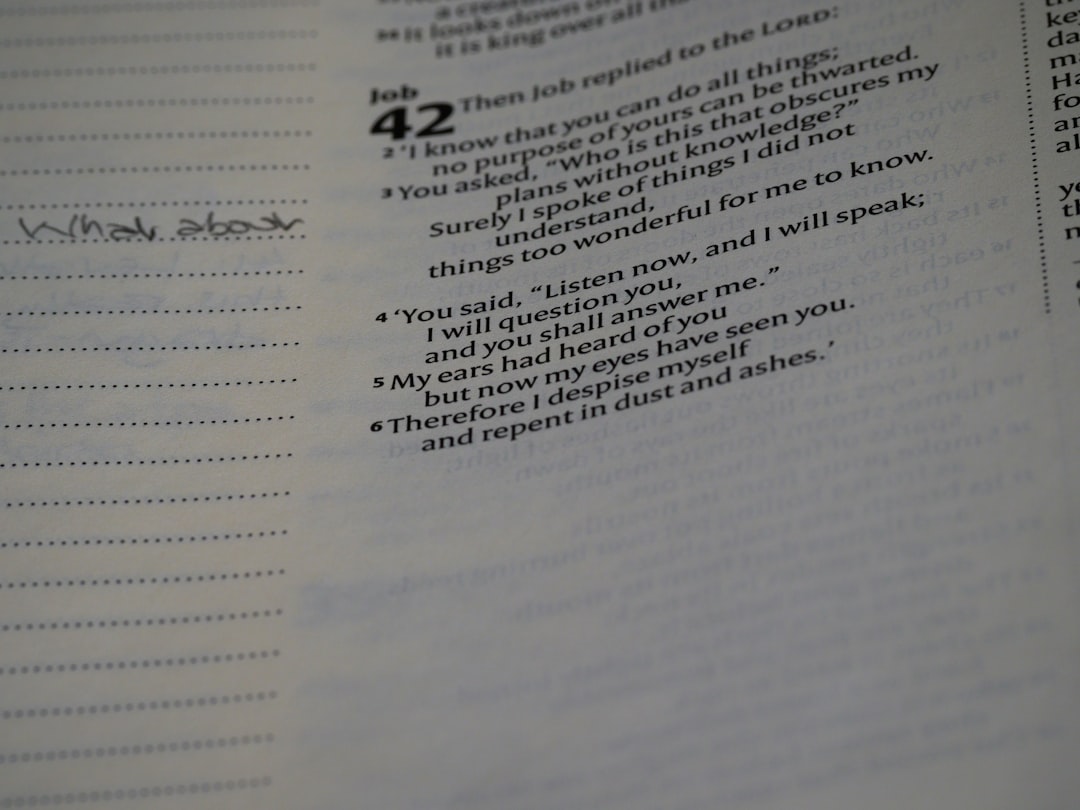 it looks down on
it is king over all tha
Job
42 Then Job replied to the LORD:
2 ‘I know that you can do all things;
no purpose of yours can be thwarted.
3 You asked, “Who is this that obscures my
plans without knowledge?”
Surely I spoke of things I did not
understand,
things too wonderful for me to know.
4 ‘You said, “Listen now, and I will speak;
I will question you,
and you shall answer me.”
5 My ears had heard of you
but now my eyes have seen you.
6 Therefore I despise myself
and repent in dust and ashes.’
What about